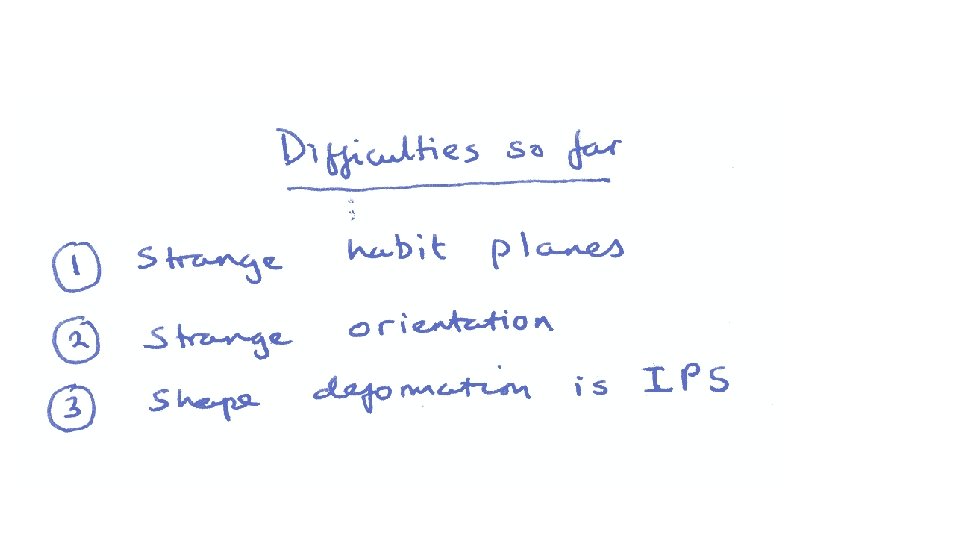 Difficulties so far
① Strange habit planes
② Strange orientation
③ Shape deformation is IPS